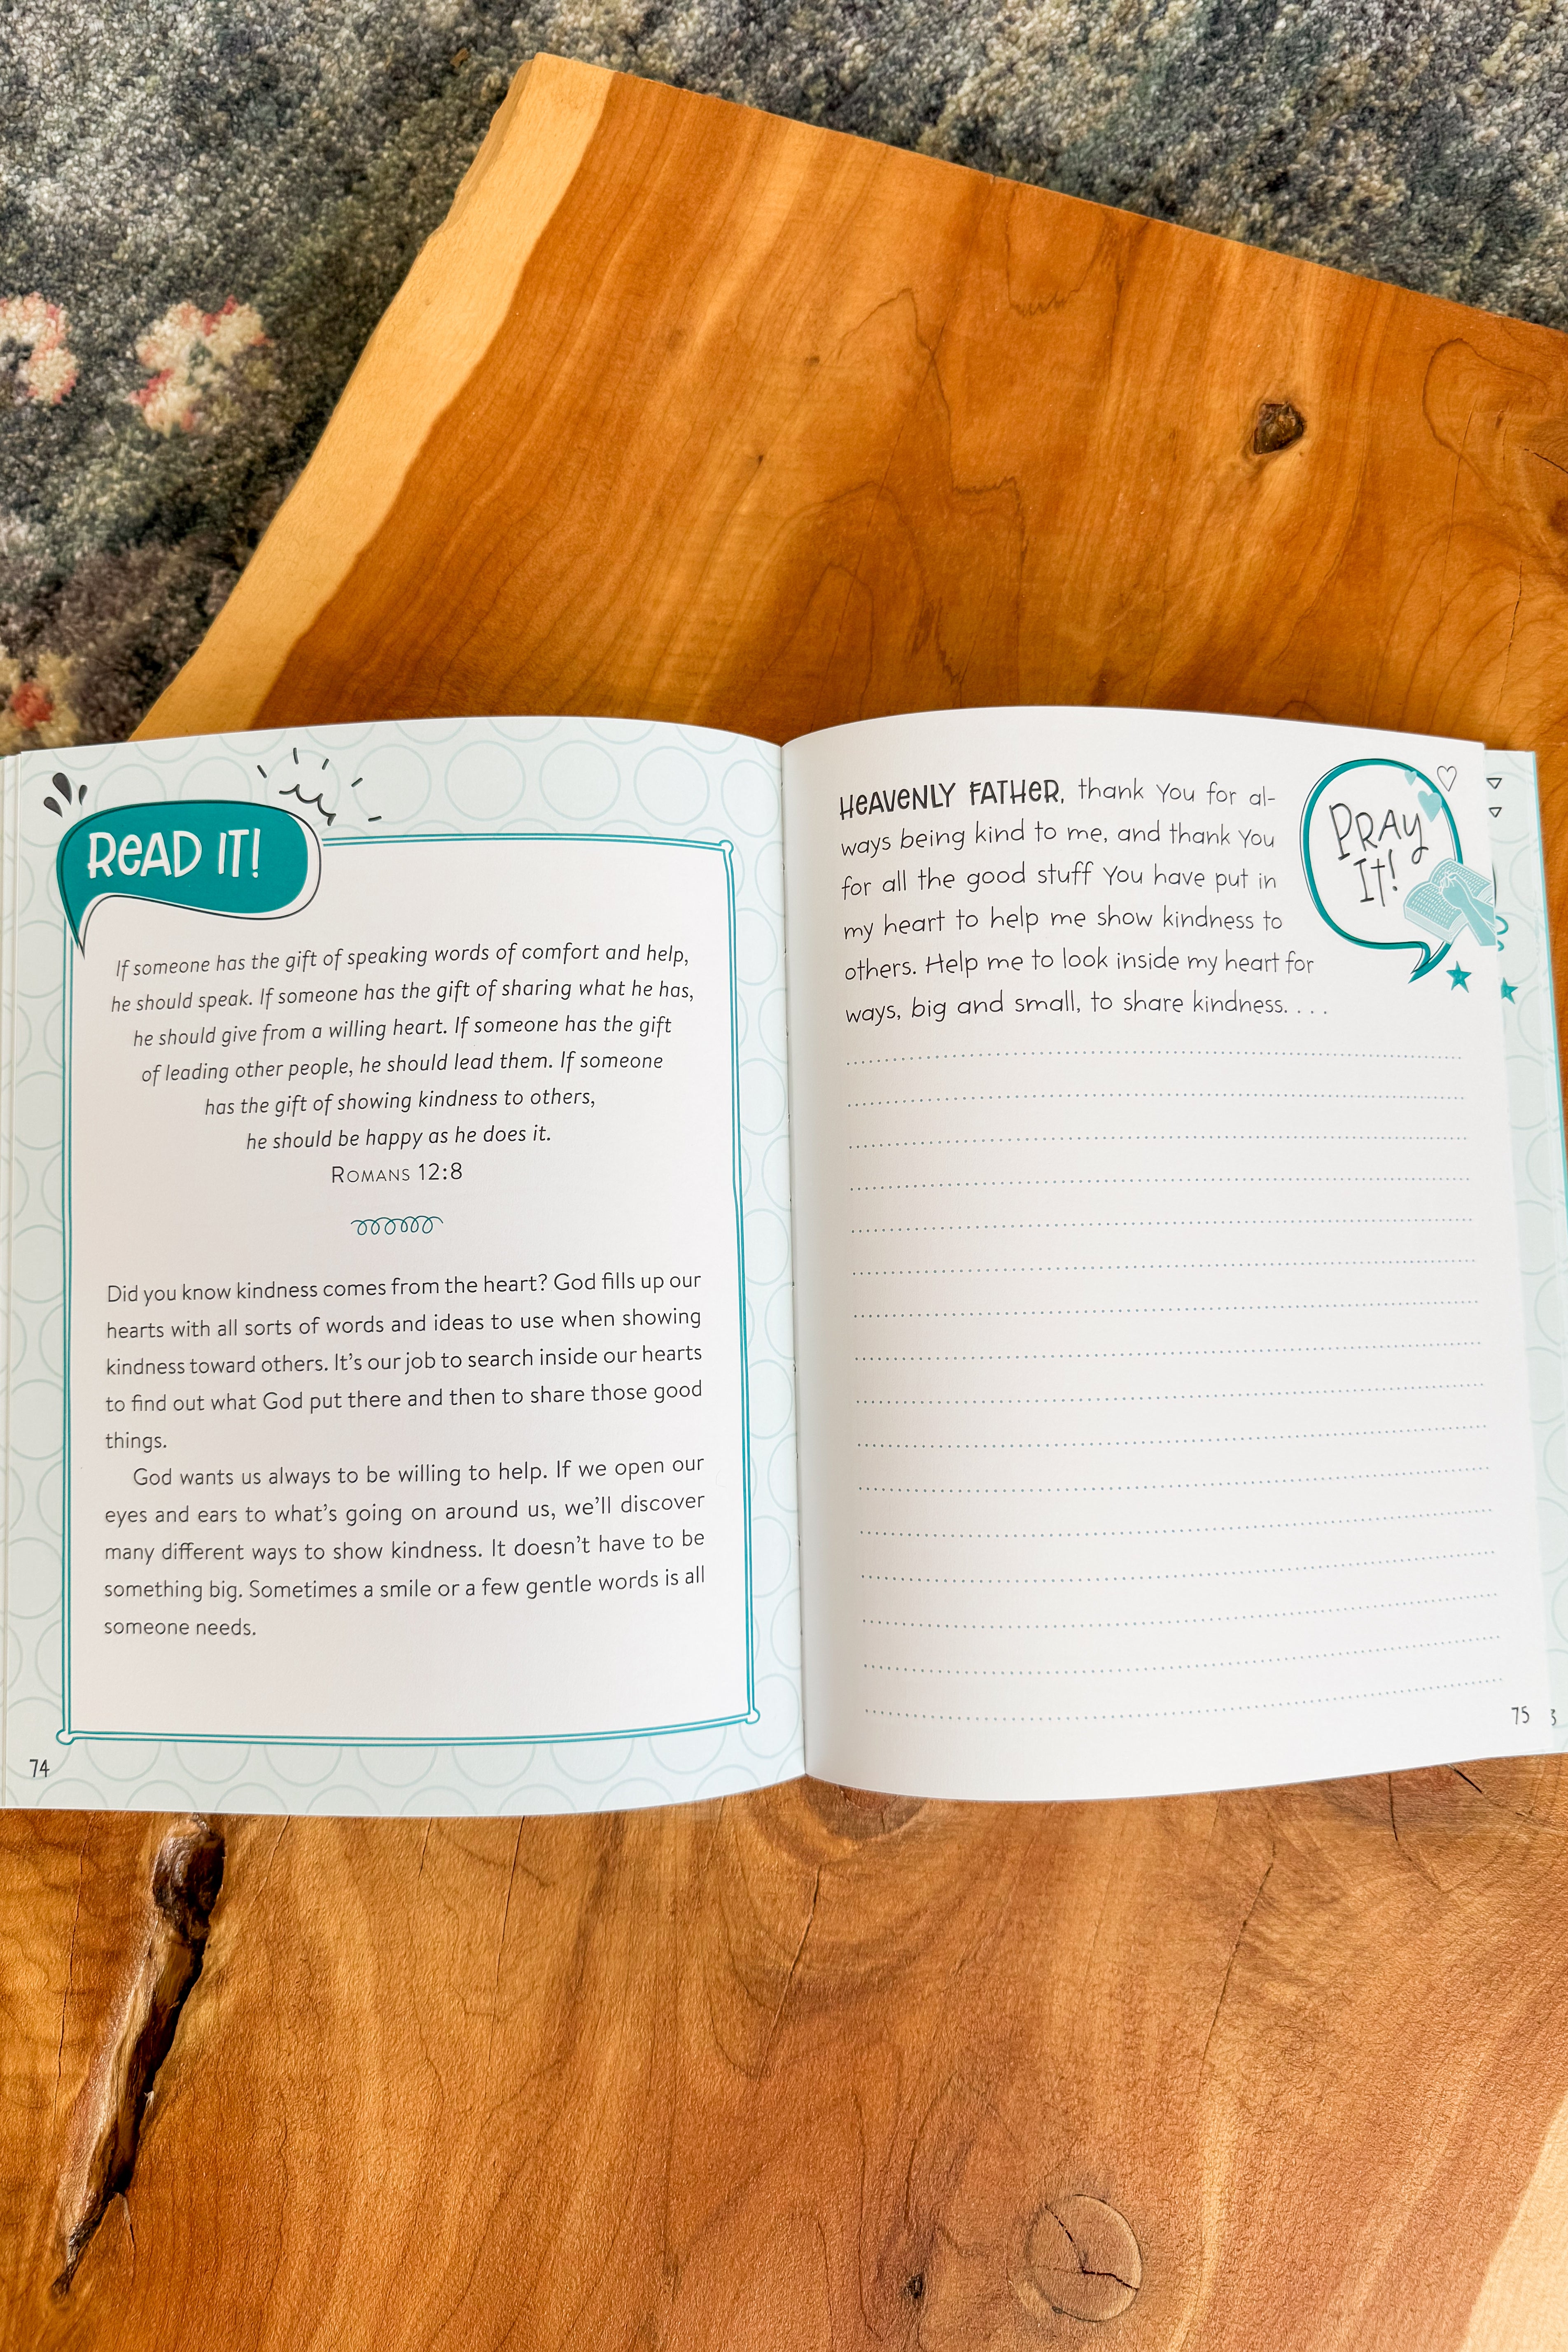 READ IT!
If someone has the gift of speaking words of comfort and help,
he should speak. If someone has the gift of sharing what he has,
he should give from a willing heart. If someone has the gift
of leading other people, he should lead them. If someone
has the gift of showing kindness to others,
he should be happy as he does it.
ROMANS 12:8
Did you know kindness comes from the heart? God fills up our
hearts with all sorts of words and ideas to use when showing
kindness toward others. It's our job to search inside our hearts
to find out what God put there and then to share those good
things.
God wants us always to be willing to help. If we open our
eyes and ears to what's going on around us, we'll discover
many different ways to show kindness. It doesn't have to be
something big. Sometimes a smile or a few gentle words is all
someone needs.
74
HEAVENLY FATHER, thank You for al-
ways being kind to me, and thank You
for all the good stuff You have put in
my heart to help me show kindness to
others. Help me to look inside my heart for
ways, big and small, to share kindness. . . .
PRAY
IT!
75
3